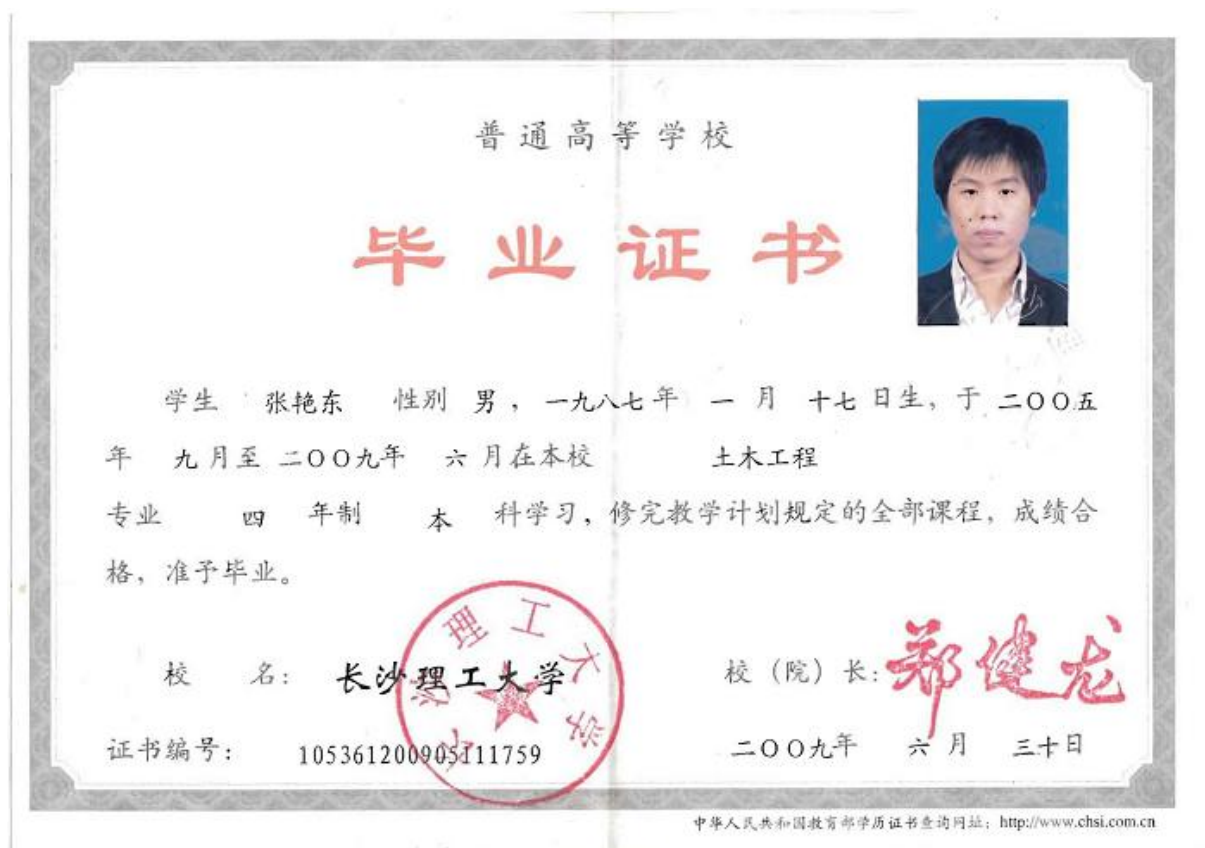 普通高等学校
毕业证书
学生 张艳东 性别 男，一九八七年 一 月 十七日生，于 二〇〇五
年 九月至 二〇〇九年 六月在本校 土木工程
专业 四 年制 本 科学习，修完教学计划规定的全部课程，成绩合
格，准予毕业。
校 名： 长沙理工大学
校（院）长：郑健龙
证书编号： 105361200905111759
二〇〇九年 六月 三十日
长沙理工大学
中华人民共和国教育部学历证书查询网址：http://www.chsi.com.cn